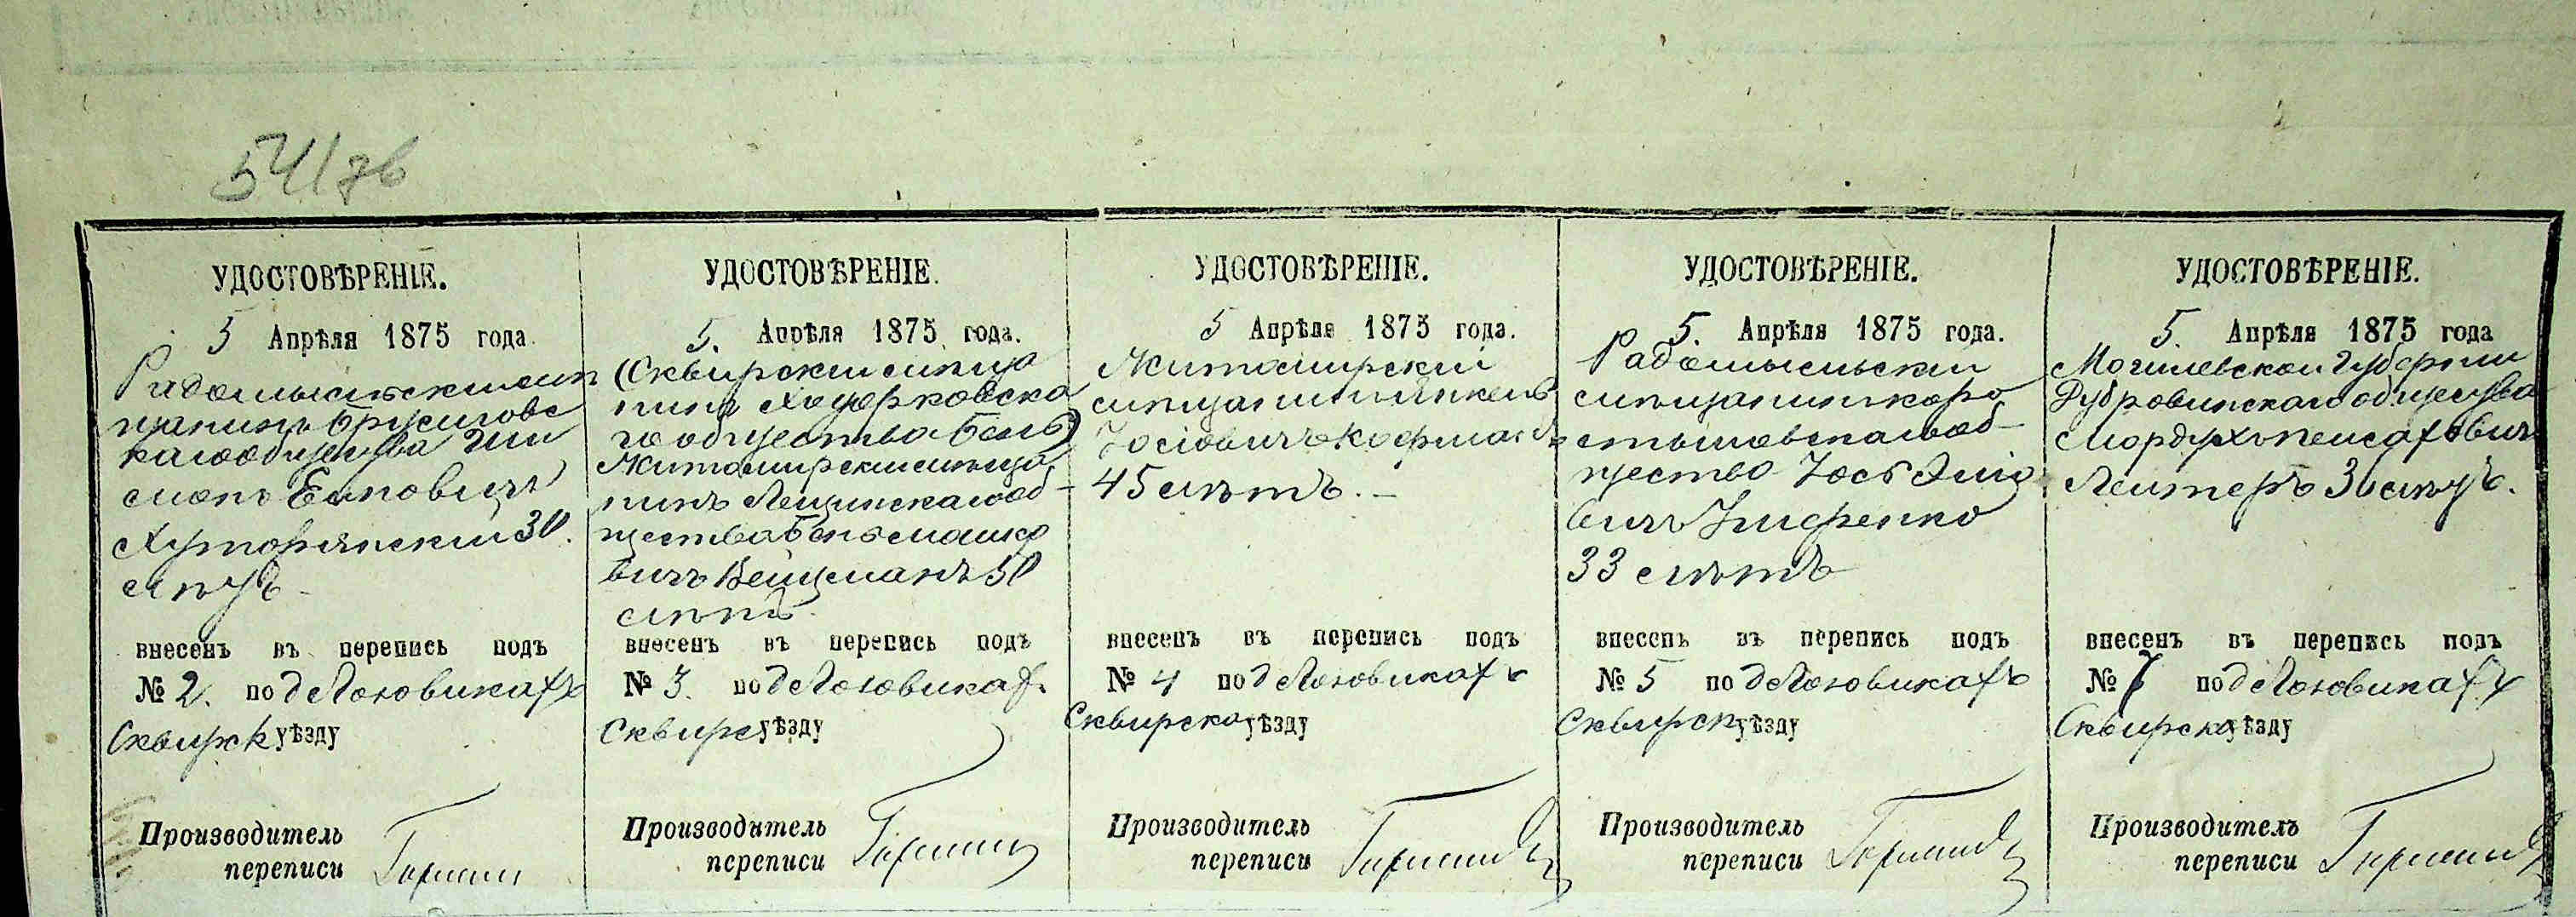 541
УДОСТОВѢРЕНІЕ.
5 Апрѣля 1875 года.
Радомысльскій мѣ
щанинъ Брусиловс
каго общества Ши
монъ Ёиновичъ
Хуторянскій 30.
лѣтъ
внесенъ въ перепись подъ
№ 2. по д Логовикахъ
Сквирск уѣзду
Производитель
переписи
УДОСТОВѢРЕНІЕ.
5. Апрѣля 1875 года.
(Сквирскій мѣща
нинъ Ходорковска
го общества Бень)
Житомирскій мѣща
нинъ Лещинскаго об-
щества Бень Мошко
вичъ Вейцманъ 50
лѣтъ
внесенъ въ перепись подъ
№ 3. по д Логовиках.
Сквирс уѣзду
Производитель
переписи
УДОСТОВѢРЕНІЕ.
5 Апрѣля 1875 года.
Житомирскій
мѣщанинъ Янкель
Іосіовичъ Кофманъ
45 лѣтъ.-
внесенъ въ перепись подъ
№ 4 по д Логовикахъ
Сквирско уѣзду
Производитель
переписи
УДОСТОВѢРЕНІЕ.
5. Апрѣля 1875 года.
Радомысльскій
мѣщанинъ Коро
стышевскаго об-
щество Іось Элiо
вичъ
33 лѣтъ
внесенъ въ перепись подъ
№ 5 по д Логовикахъ
Сквирск уѣзду
Производитель
переписи
УДОСТОВѢРЕНІЕ.
5. Апрѣля 1875 года
Могилевской Губерніи
Дубровинскаго общества
Мордухъ Пейсаховичъ
Лейтеръ 30 лѣтъ.
внесенъ въ перепись подъ
№ 7 по д Логовикахъ
Сквирско уѣзду
Производитель
переписи